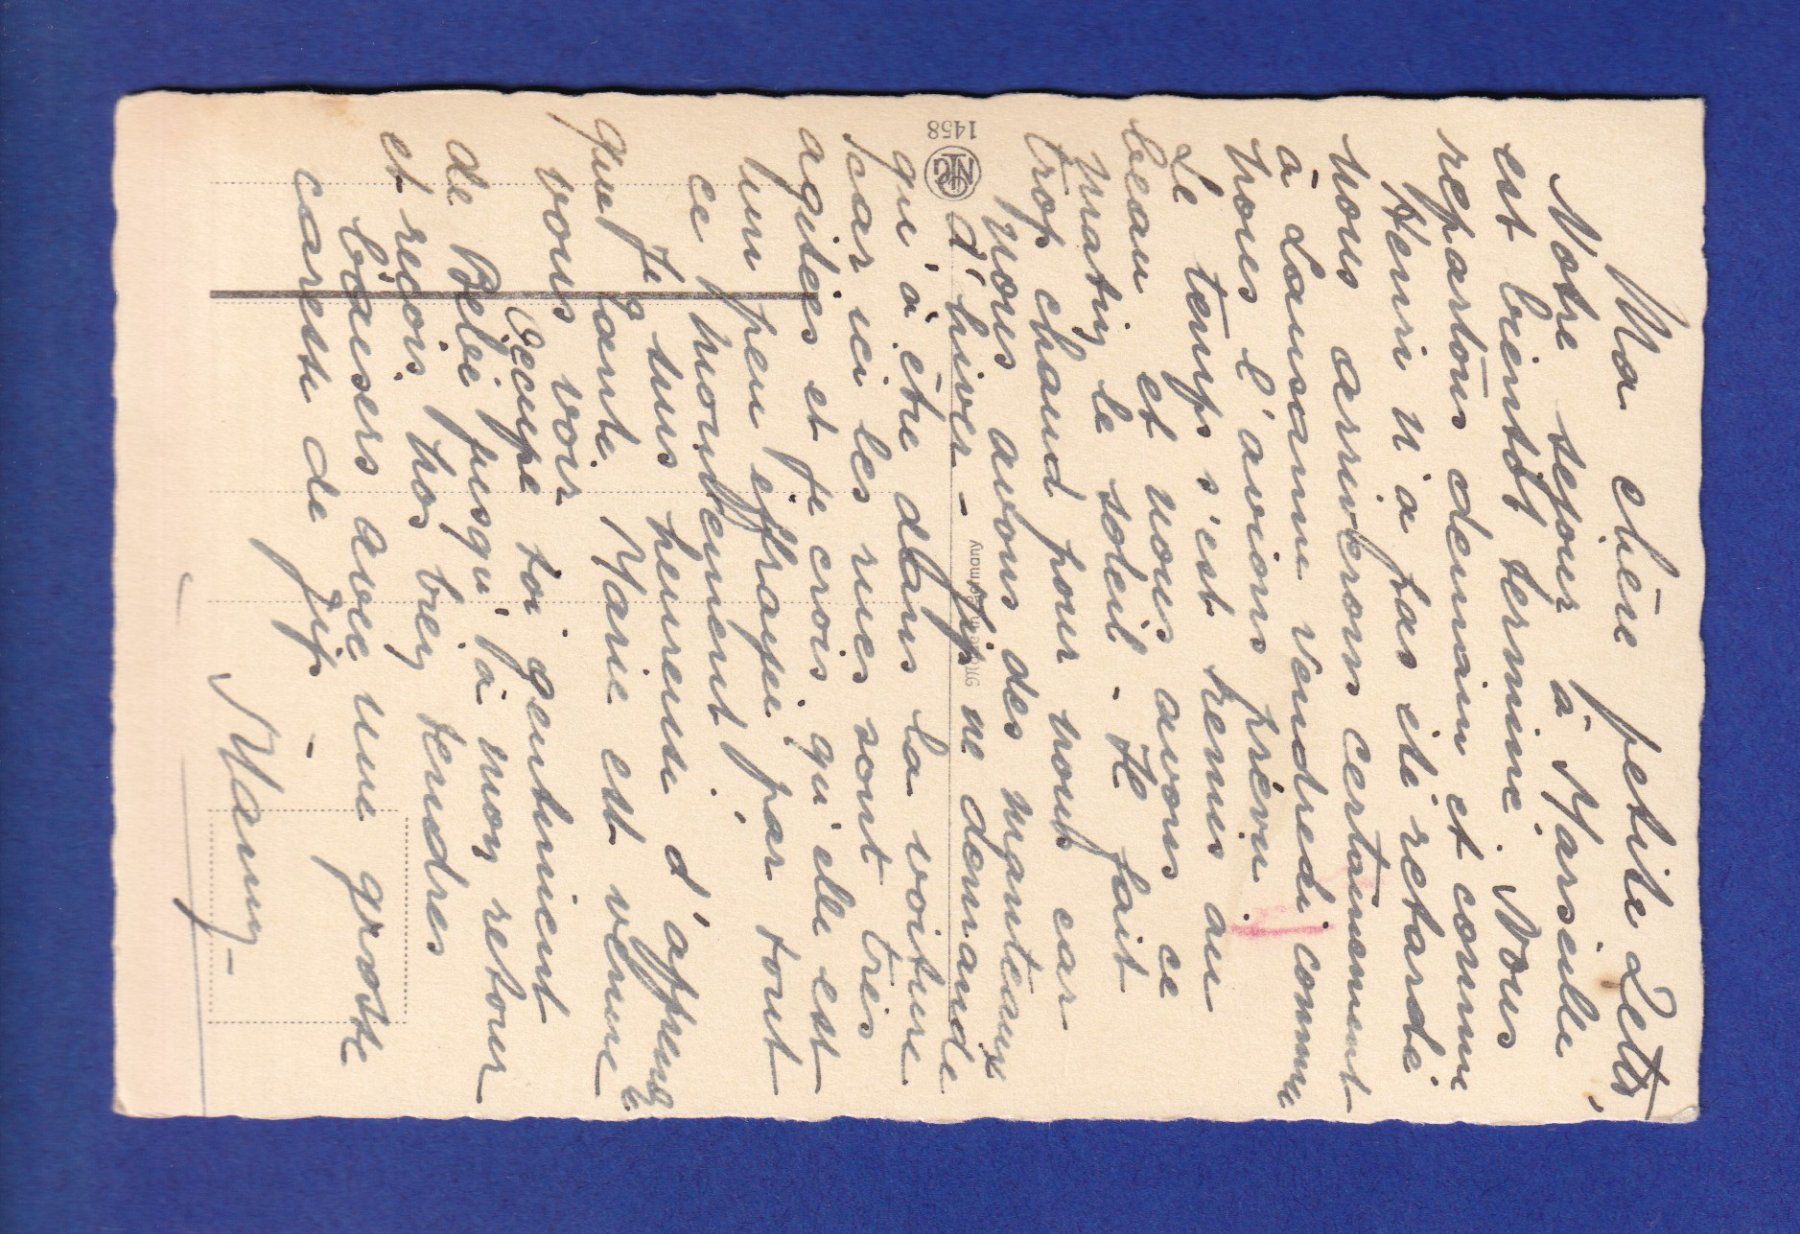 Ma chère petite Zette,
Notre séjour à Marseille
est bientôt terminé. Nous
repartons demain et comme
Henri n'a pas été retardé
nous arriverons certainement
à Lausanne vendredi comme
nous l'avions prévu.
Le temps s'est remis au
beau et nous avons ce
matin le soleil - Il fait
trop chaud pour nous car
nous avons des manteaux
d'hiver - Zip ne demande
qu'à être dans la voiture
car ici les rues sont très
agitées et je crois qu'elle est
un peu effrayée par tout
ce mouvement.
Je suis heureuse d'apprendre
que Tante Marie est venue
vous voir
Occupe toi gentiment
de Bébé jusqu'à mon retour
et reçois nos bien tendres
baisers avec une grosse
caresse de Zip -
Mamy -
1458
NPG
Germany